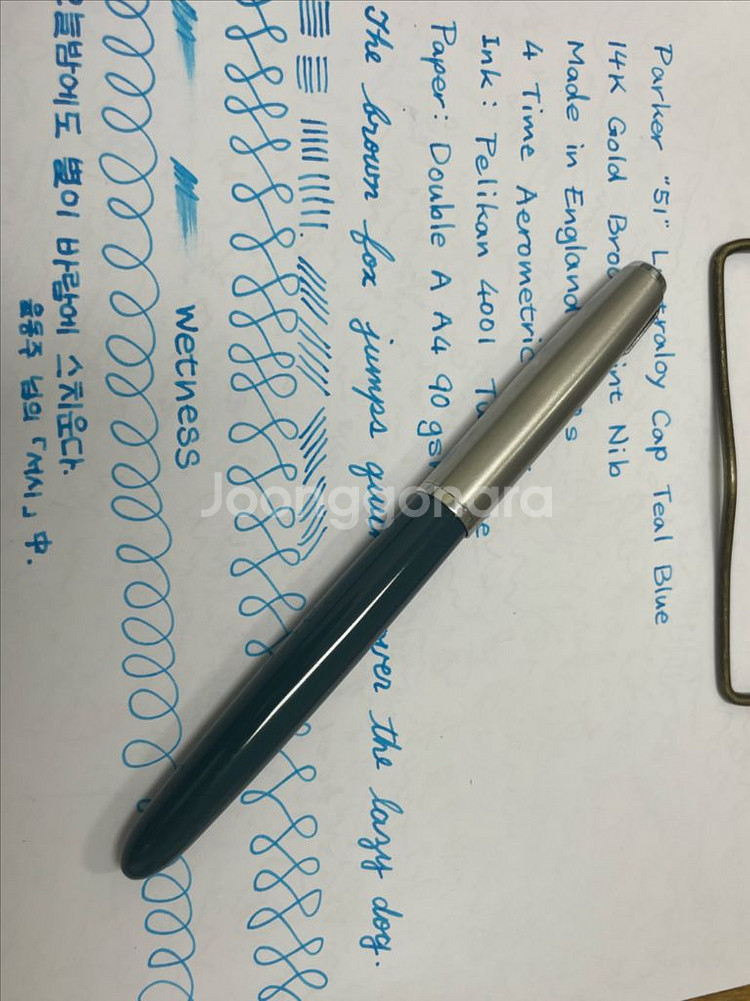 Parker "51" L traloy Cap Teal Blue
14K Gold Bro int Nib
Made in England
4 Time Aerometric s
Ink: Pelikan 4001 Tu e
Paper: Double A A4 90 gs
The brown fox jumps qui over the lazy dog.
wetness
오늘밤에도 별이 바람에 스치운다.
윤동주 님의 「서시」 中.
Joonggonara